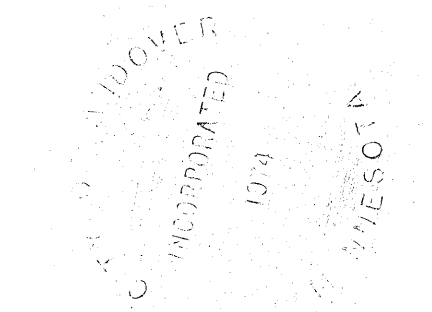 CITY OF ANDOVER
INCORPORATED
1974
MINNESOTA